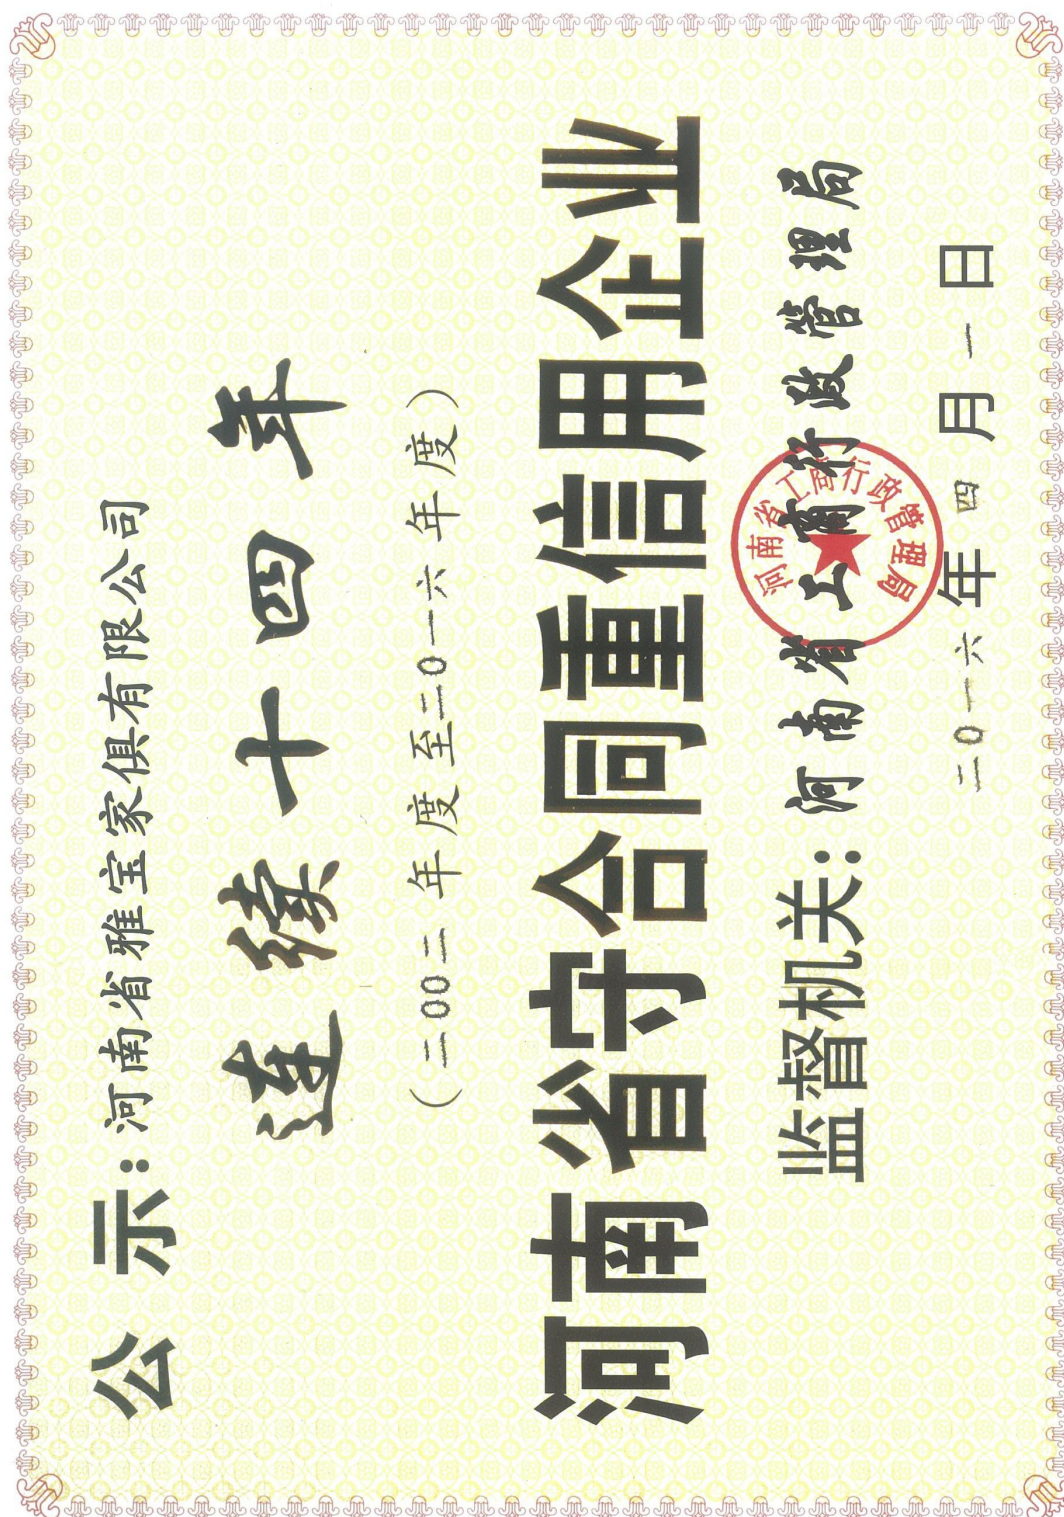 公 示：河南省雅宝家俱有限公司
连续十四年
（二00二年度至二0一六年度）
河南省守合同重信用企业
监督机关：河南省工商行政管理局
河南省工商行政管理局
二0一六年四月一日